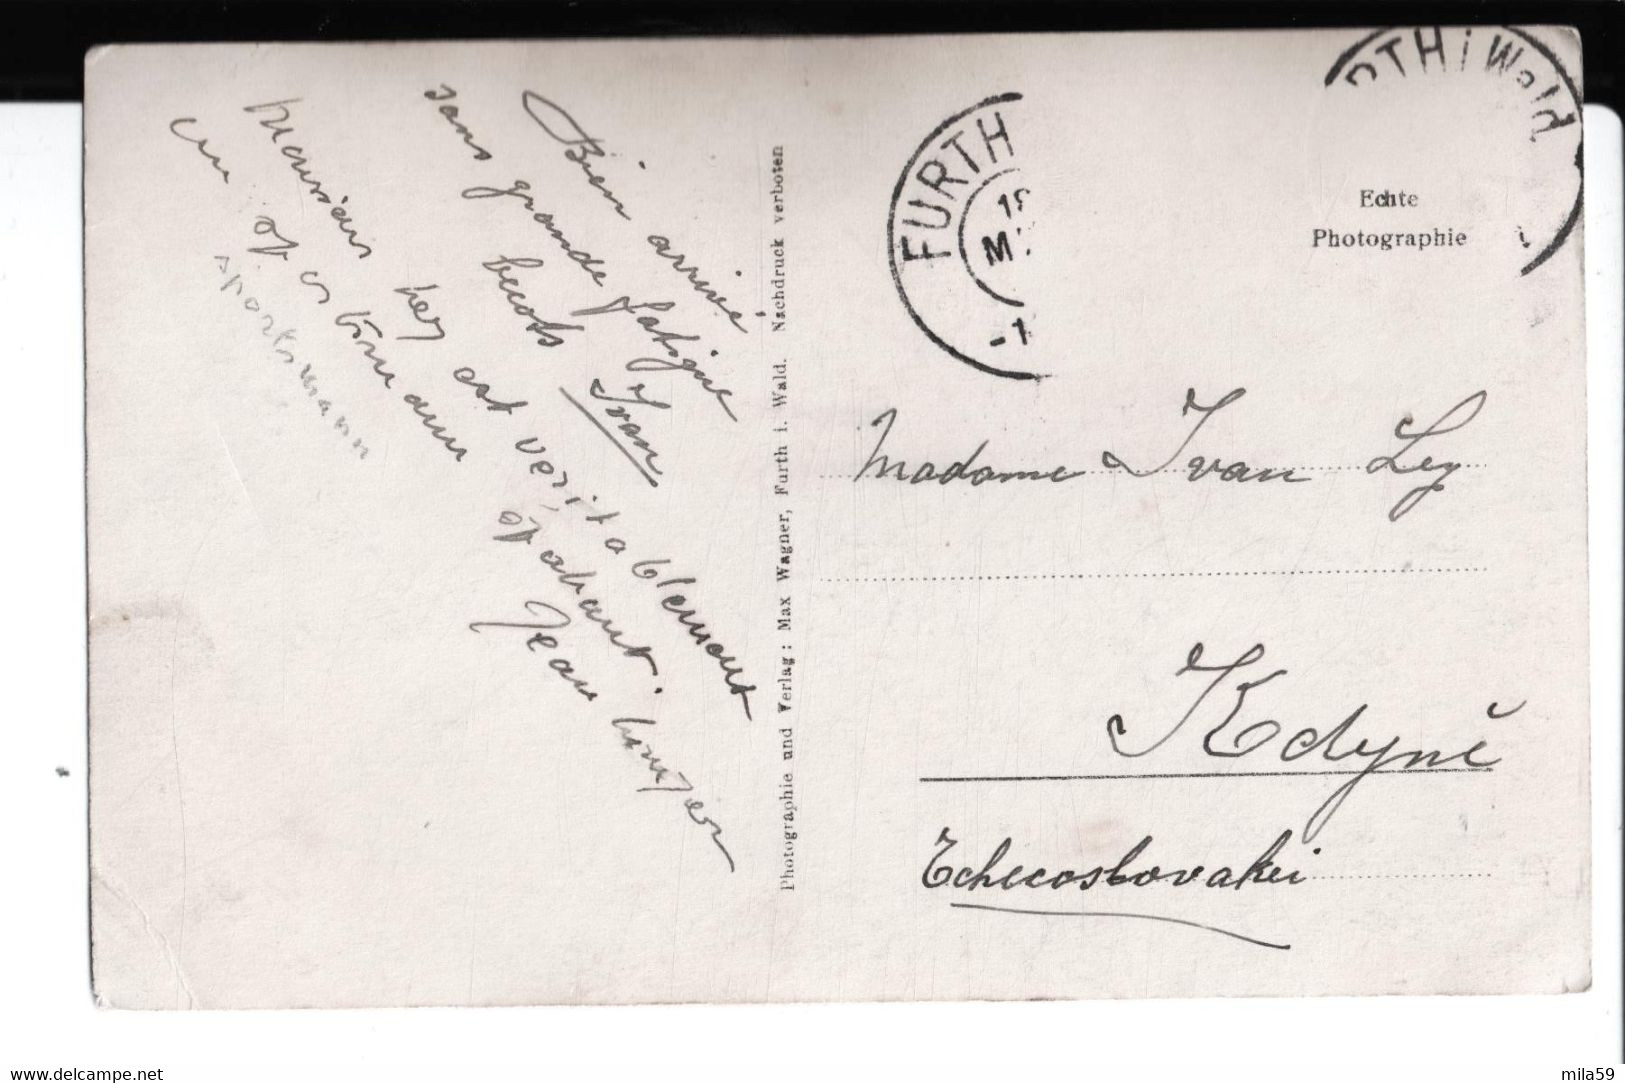 Bien arrivé
sans grande fatigue
becots Ivan
Monsieur Ley est véritablement
un
épatant.
sportsmann
Jean
Photographie und Verlag: Max Wagner, Furth i. Wald. Nachdruck verboten
FURTH
19
-1
RTH i Wald
Echte
Photographie
Madame Ivan Ley
Kdyně
Tchecoslovakei
www.delcampe.net
mila59